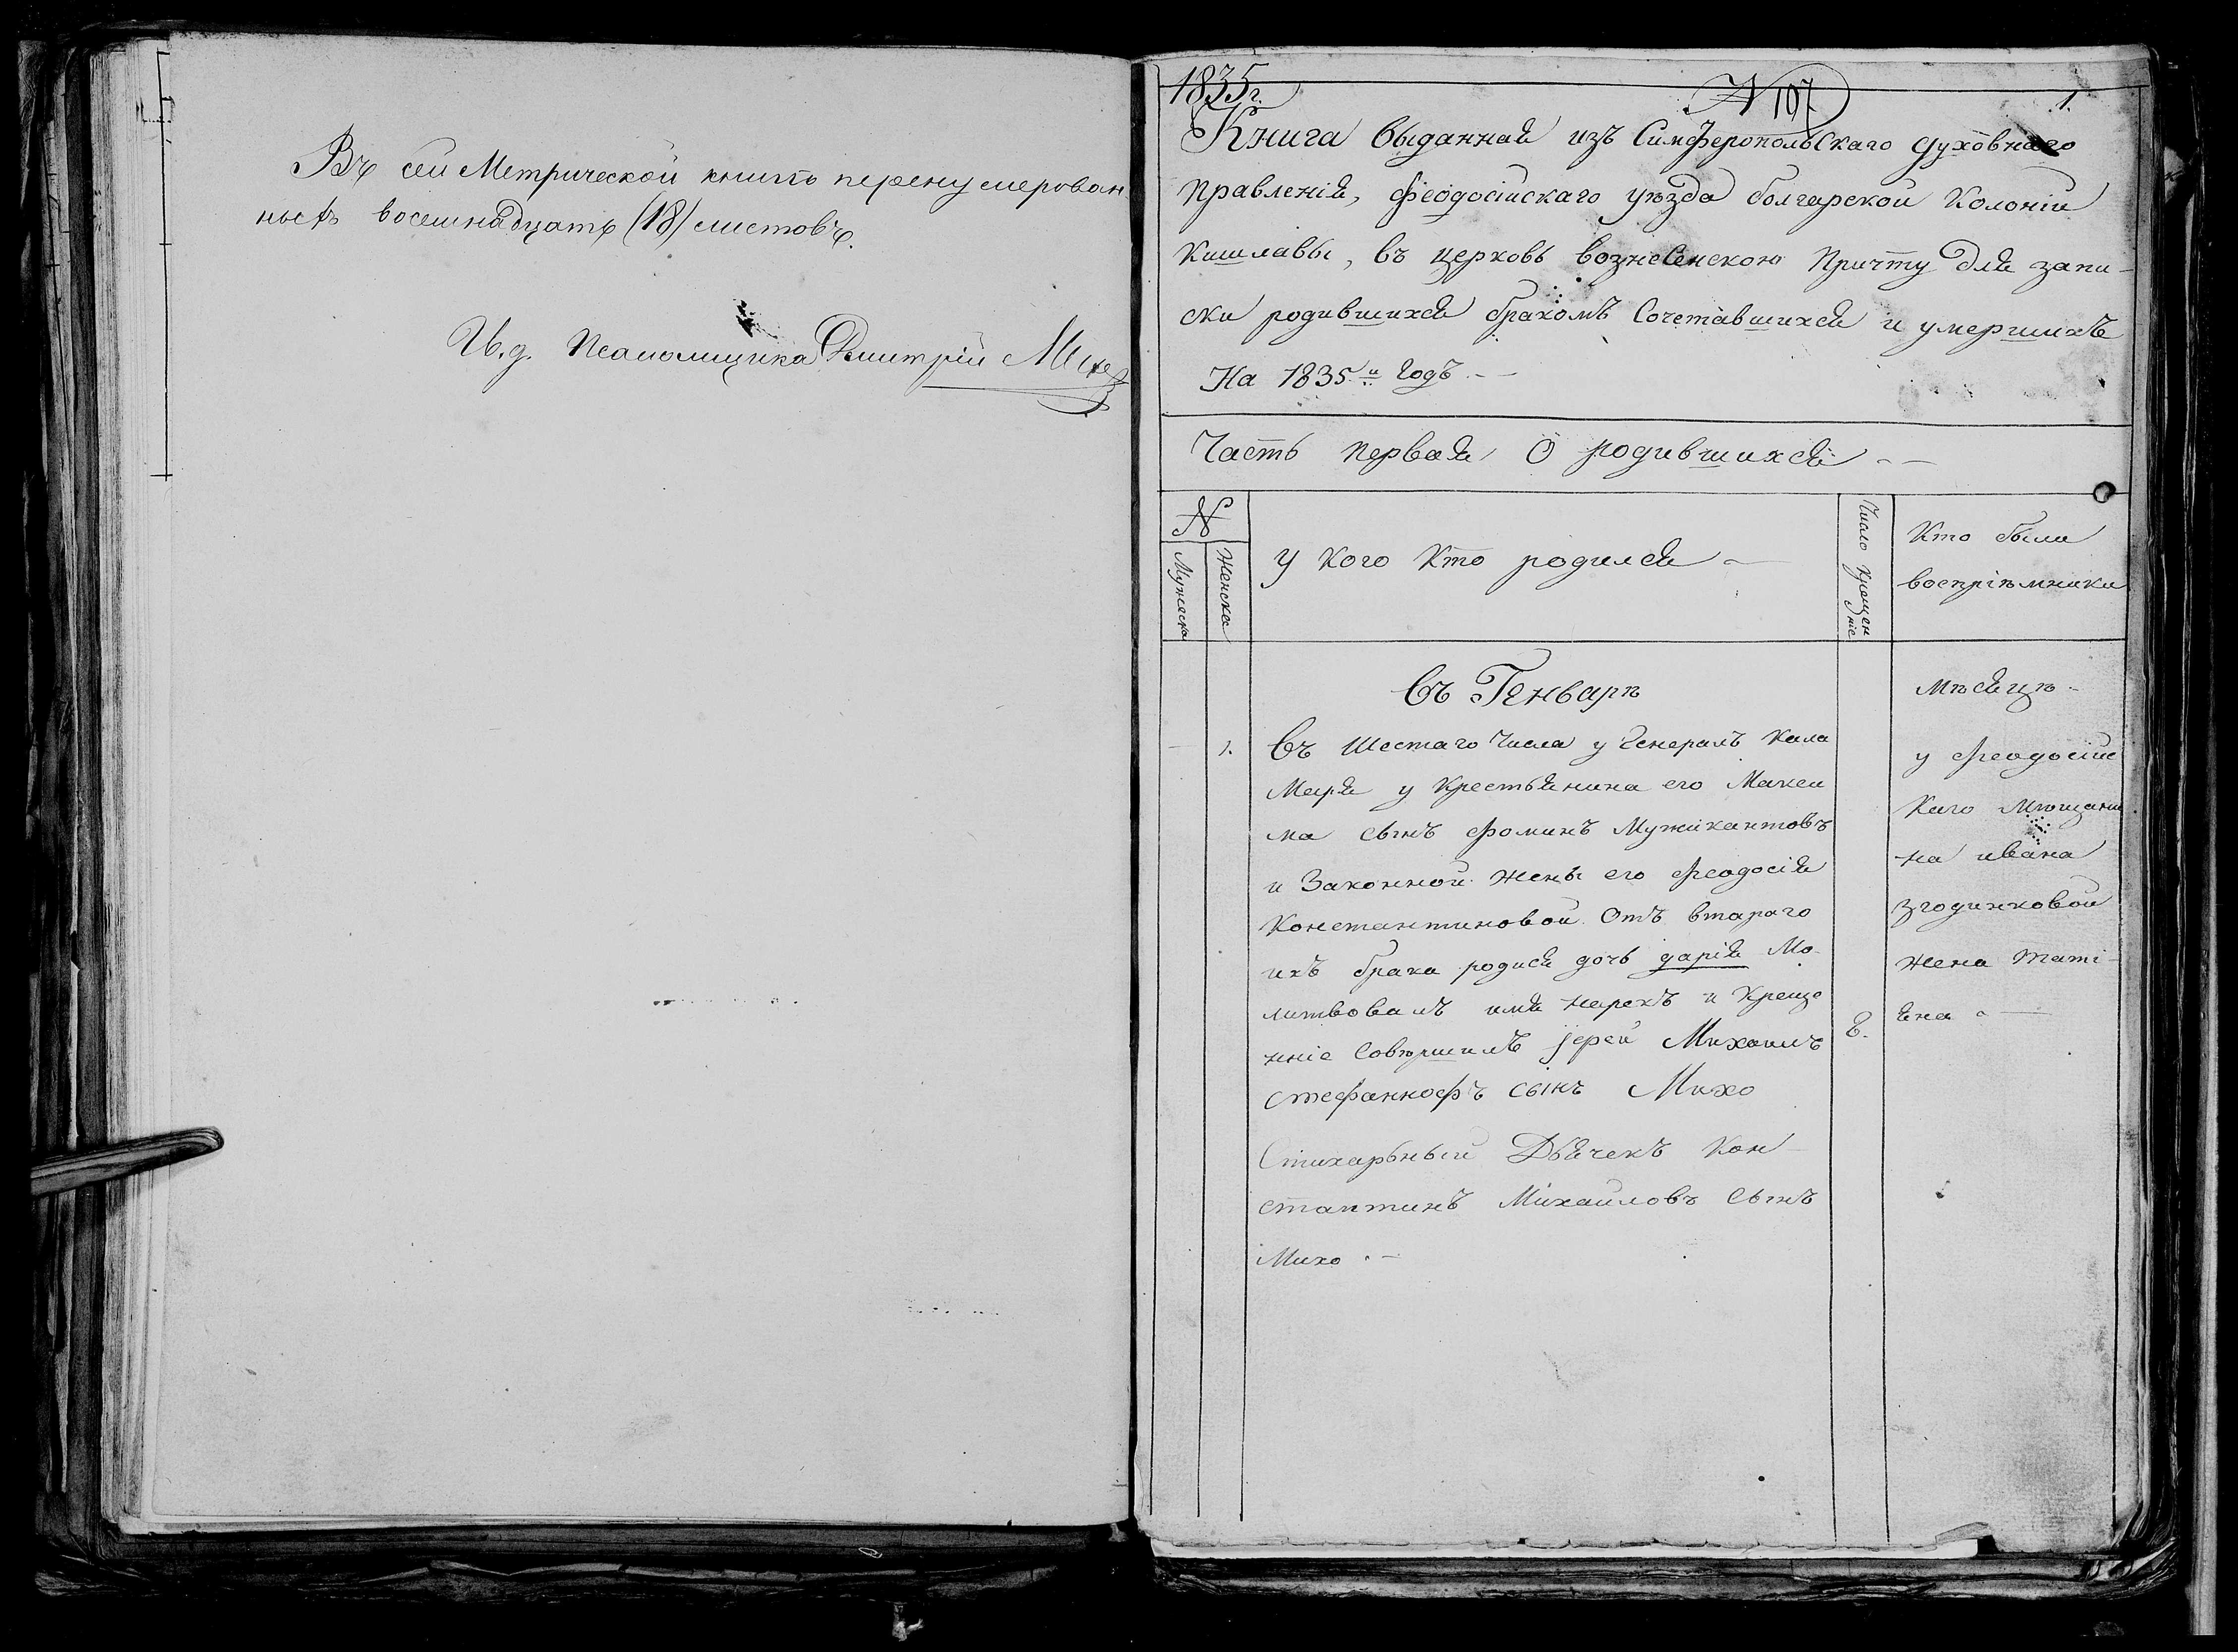 Въ сей Метрической книгѣ перенумерован
ныхъ восемнадцать (18) листовъ.
И. д. Псаломщика Дмитрій
1835г.
N 107
1.
Книга выданная изъ Симферопольскаго духовнаго
правленія, феодосійскаго уѣзда болгарской Колоніи
Кишлавы, въ церковь вознесенскою Причту для запи-
ски родившихся бракомъ Сочетавшихся и умершихъ
На 1835.й Годъ. —
Часть первая О родившихся —
N
Мужеска
Женска
у Кого Кто родился —
Число крещен
ніе
Кто были
воспріѣмники
въ Генварѣ
мѣсяцѣ -
1. въ Шестаго Числа у Генералъ Кала
Мара у Крестьянина его Макси
ма сынъ фоминъ Мужикантовъ
и Законной жены его феодосія
Константиновой Отъ втараго
ихъ брака родися дочь дарія Мо-
литвовалъ имя нарекъ и Креще
ніе Совѣршилъ јерей Михаилъ
стефанкофъ сынъ Михо
Стихарьный Дьячекъ Кон-
стантинъ Михаиловъ Сынъ
Михо. —
у феодосійс
каго Мѣщани
на ивана
згодинковой
жена тати-
яна. —